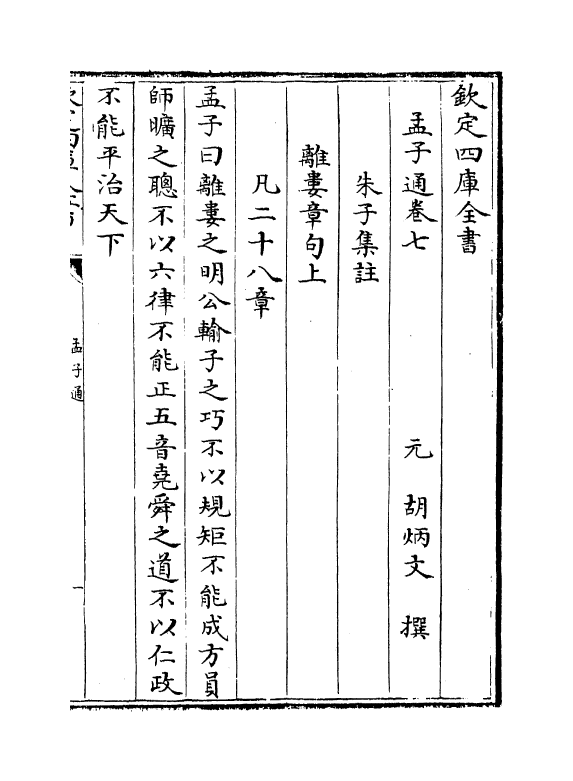 欽定四庫全書
孟子通卷七　　元　胡炳文　撰
朱子集註
離婁章句上
凡二十八章
孟子曰離婁之明公輸子之巧不以規矩不能成方員
師曠之聰不以六律不能正五音堯舜之道不以仁政
不能平治天下
孟子通
一